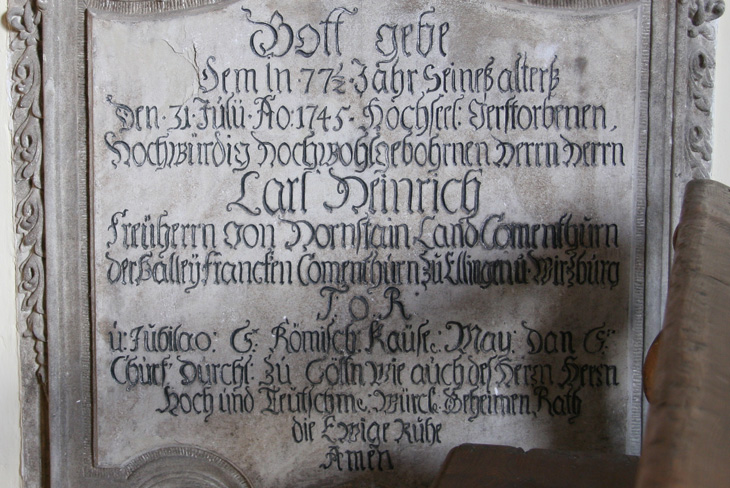 Gott gebe
Dem in · 77½ · Jahr Seineß alterß
Den · 31 · Julÿ · Ao: 1745 · Hochseel: Verstorbenen,
Hochwürdig Hochwohlgebohrnen Herrn Herrn
Carl Heinrich
Freÿherrn von Hornstain Land Comenthurn
der Balleÿ Francken Comenthurn zu Ellingen u: Wirzburg
T · O · R ·
u: Jubilao: Römisch: Kaÿs: Maÿ: Dan
Churf: Durchl: zu Cölln wie auch des Herrn Herrn
Hoch und Teutschm: Würckl: Geheimen Rath
die Ewige Ruhe
Amen